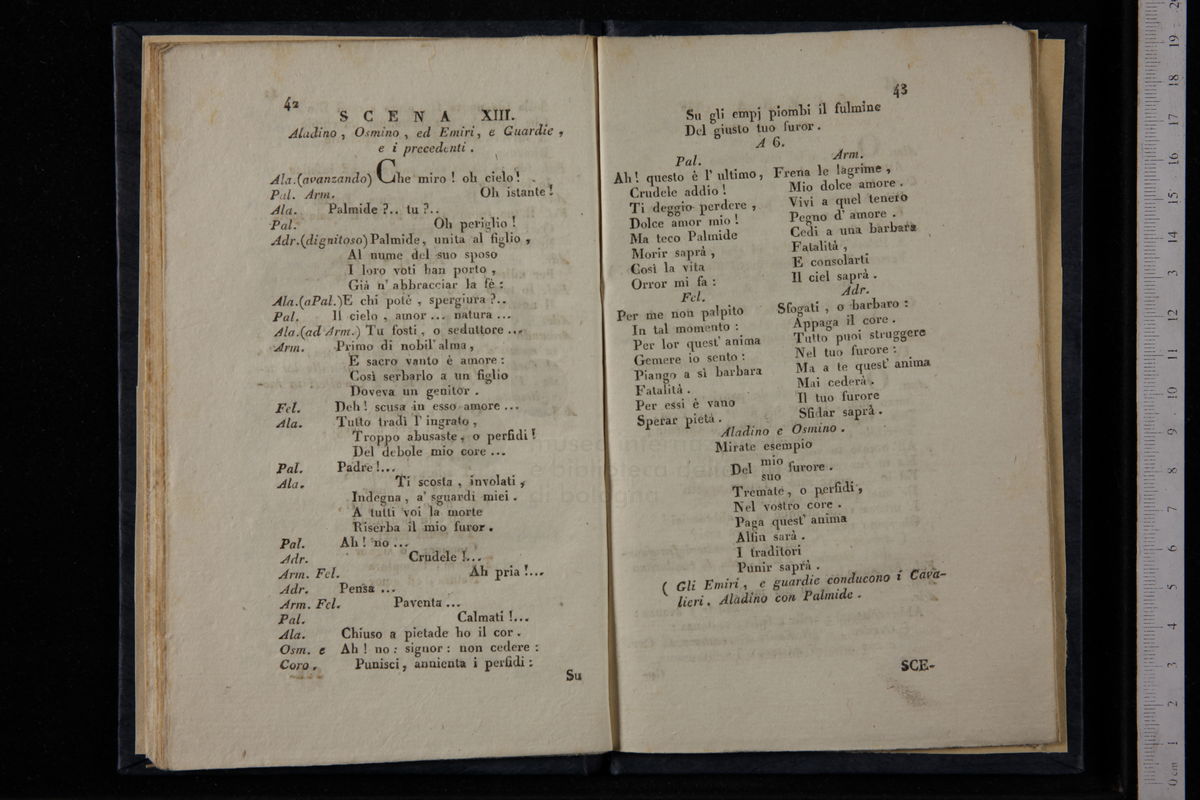 42
SCENA XIII.
Aladino, Osmino, ed Emiri, e Guardie,
e i precedenti.
Ala.(avanzando) Che miro! oh cielo!
Pal. Arm. Oh istante!
Ala. Palmide?.. tu?..
Pal. Oh periglio!
Adr.(dignitoso) Palmide, unita al figlio,
Al nume del suo sposo
I loro voti han porto,
Già n' abbracciar la fè:
Ala.(aPal.)E chi potè, spergiura?..
Pal. Il cielo, amor... natura...
Ala.(ad Arm.) Tu fosti, o seduttore...
Arm. Primo di nobil' alma,
E sacro vanto è amore:
Così serbarlo a un figlio
Doveva un genitor.
Fel. Deh! scusa in esso amore...
Ala. Tutto tradì l' ingrato,
Troppo abusaste, o perfidi!
Del debole mio core...
Pal. Padre!...
Ala. Ti scosta, involati,
Indegna, a' sguardi miei.
A tutti voi la morte
Riserba il mio furor.
Pal. Ah! no...
Adr. Crudele!...
Arm. Fel. Ah pria!...
Adr. Pensa...
Arm. Fel. Paventa...
Pal. Calmati!...
Ala. Chiuso a pietade ho il cor.
Osm. e Ah! no: signor: non cedere:
Coro. Punisci, annienta i perfidi:
Su
43
Su gli empj piombi il fulmine
Del giusto tuo furor.
A 6.
Pal.
Ah! questo è l' ultimo,
Crudele addio!
Ti deggio perdere,
Dolce amor mio!
Ma teco Palmide
Morir saprà,
Così la vita
Orror mi fa:
Arm.
Frena le lagrime,
Mio dolce amore.
Vivi a quel tenero
Pegno d' amore.
Cedi a una barbara
Fatalità,
E consolarti
Il ciel saprà.
Fel.
Per me non palpito
In tal momento:
Per lor quest' anima
Gemere io sento:
Piango a sì barbara
Fatalità.
Per essi è vano
Sperar pietà.
Adr.
Sfogati, o barbaro:
Appaga il core.
Tutto puoi struggere
Nel tuo furore:
Ma a te quest' anima
Mai cederà.
Il tuo furore
Sfidar saprà.
Aladino e Osmino.
Mirate esempio
Del mio furore.
suo
Tremate, o perfidi,
Nel vostro core.
Paga quest' anima
Alfin sarà.
I traditori
Punir saprà.
( Gli Emiri, e guardie conducono i Cava-
lieri. Aladino con Palmide.
SCE-